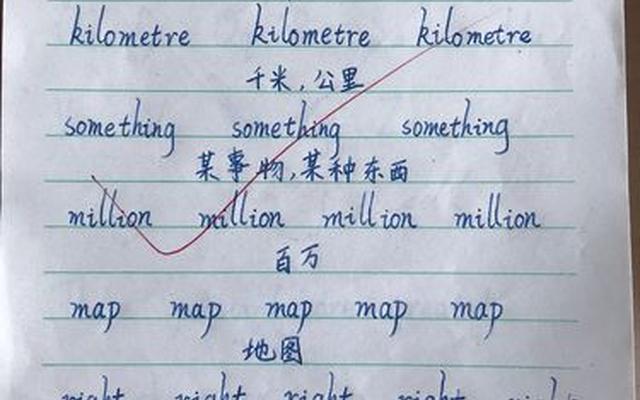 kilometre kilometre kilometre
千米,公里
something something something
某事物,某种东西
million million million million
百万
map map map map map
地图
right right right right